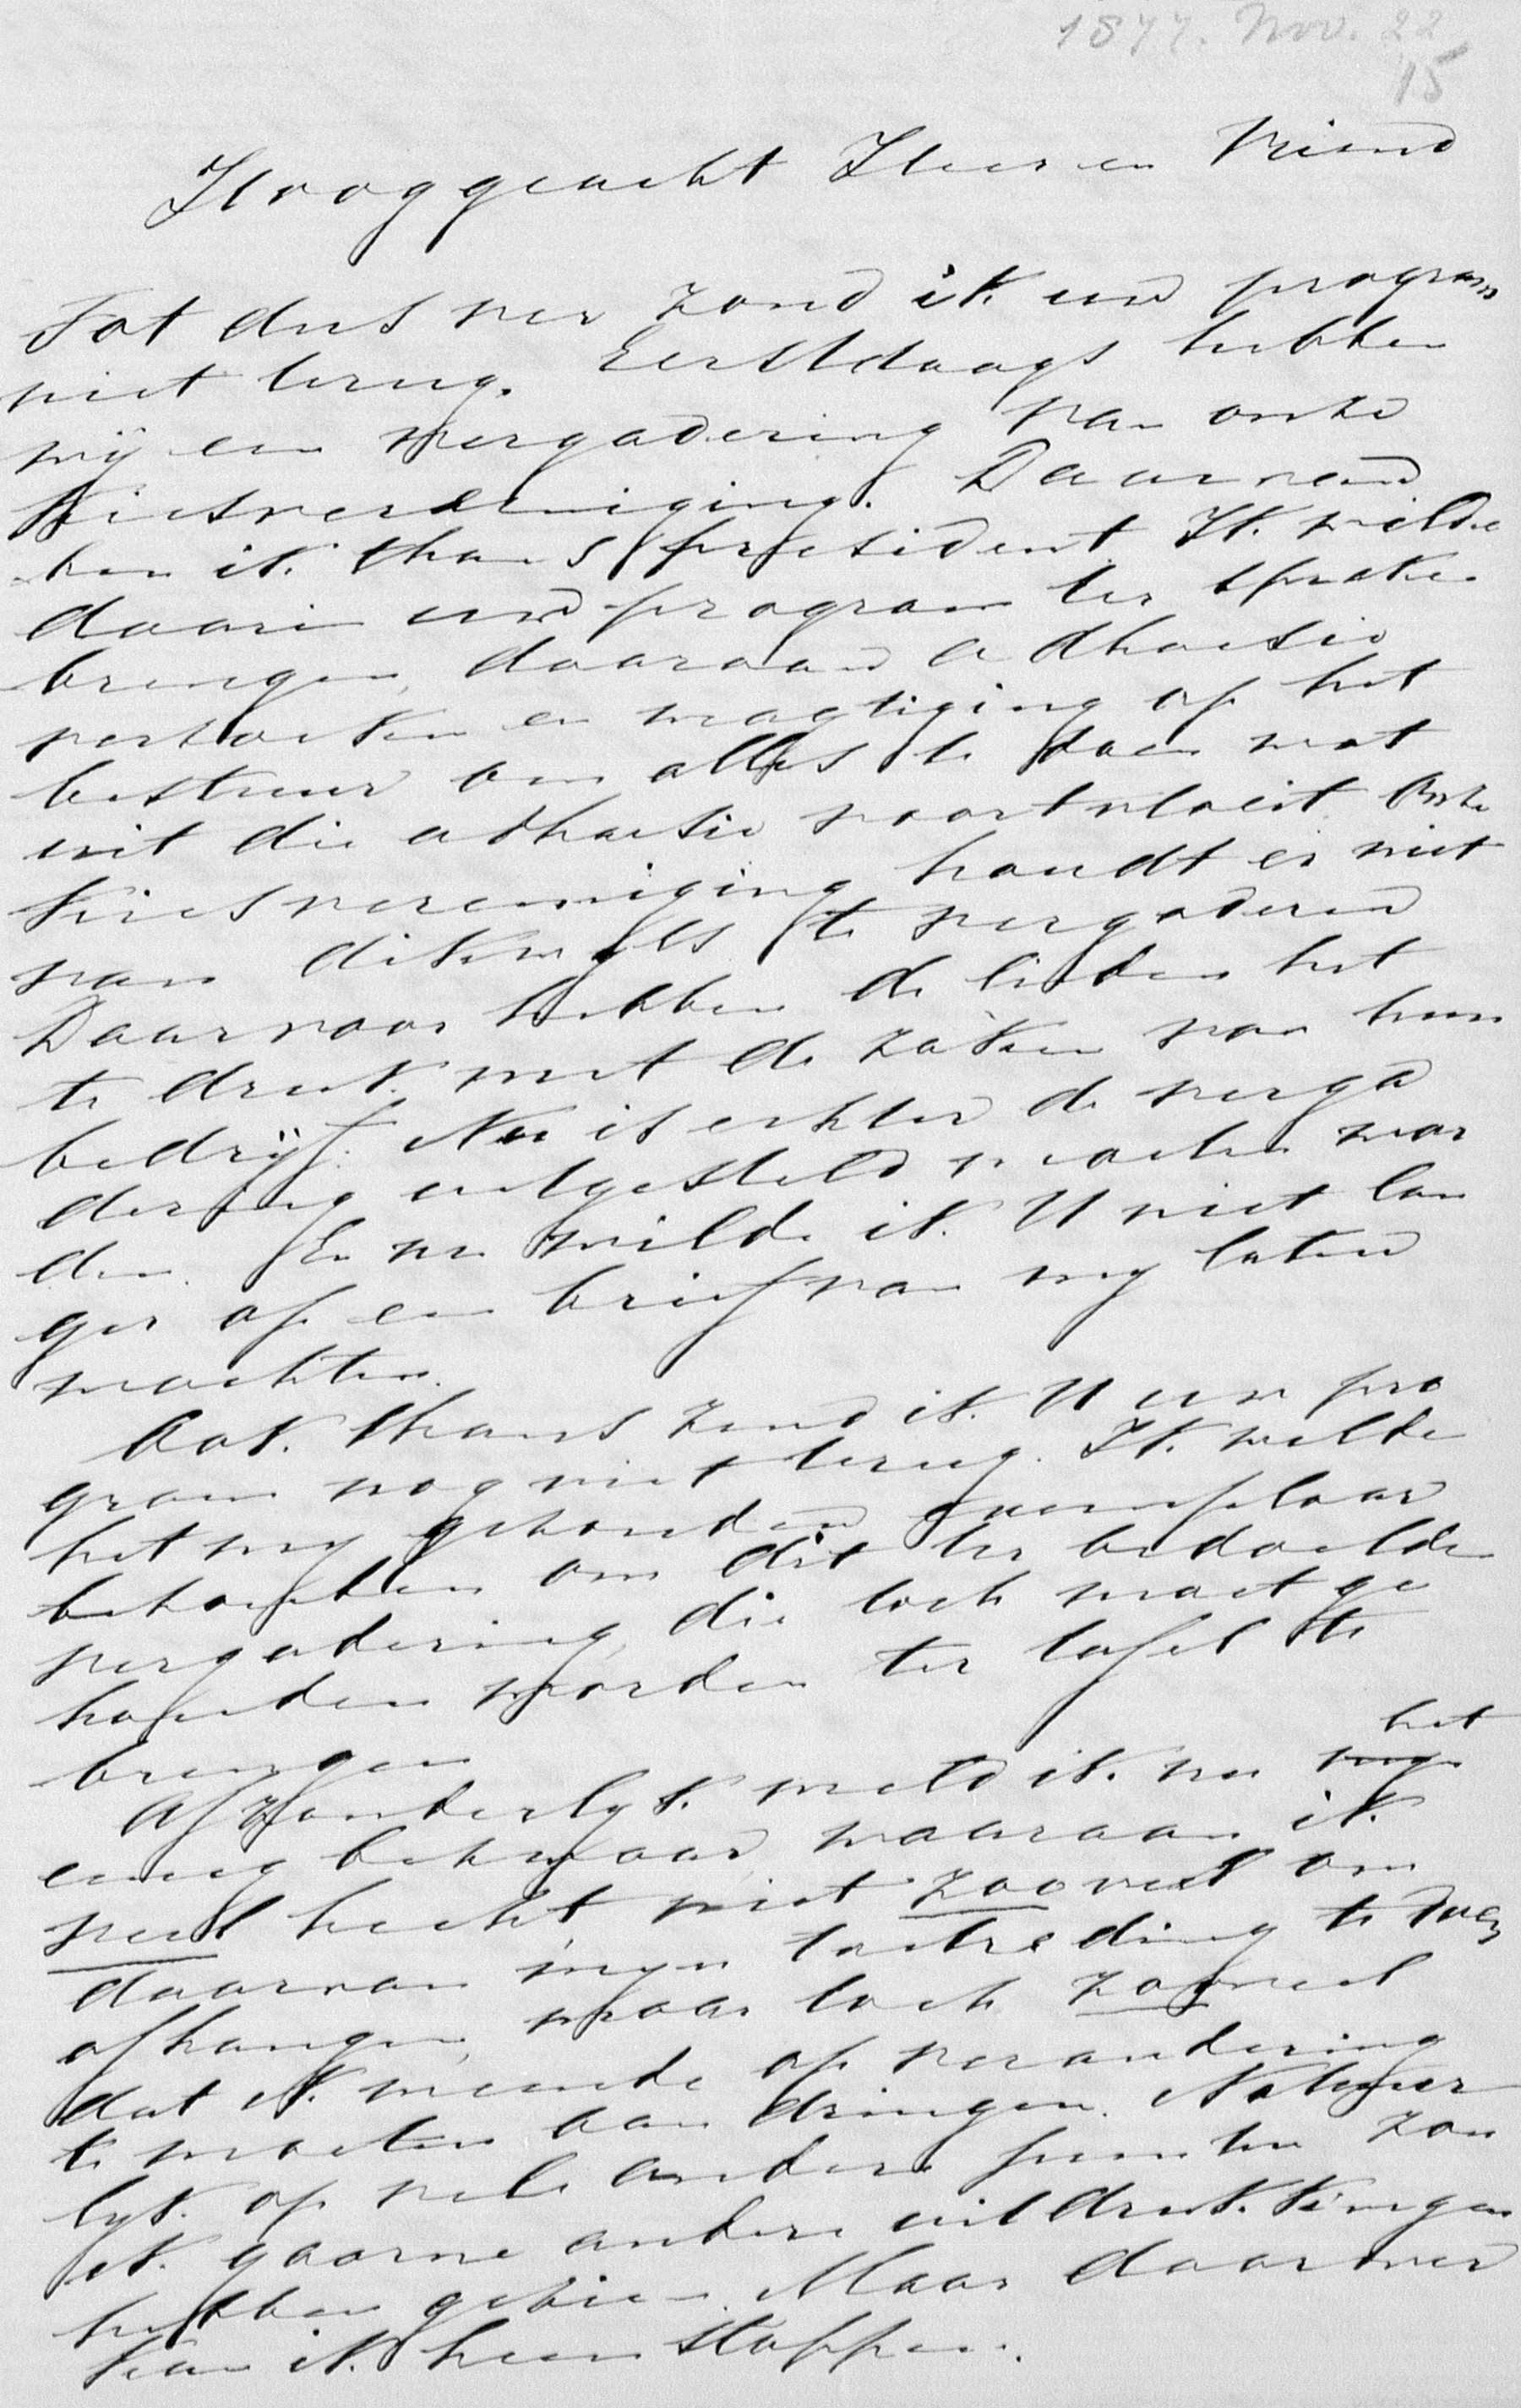 1877. Nov. 22
15
Hooggeacht Heer en Vriend
Tot dus ver zond ik uw program
niet terug. Eerstdaags hebben
wij een vergadering van onze
Kiesvereeniging. Daarvan
ben ik thans president. Ik wilde
daarin uw program ter sprake
brengen, daaraan adhaesie
verzoeken en magtiging op het
bestuur om alles te doen wat
uit die adhaesie voortvloeit. Onze
kiesvereeniging houdt er niet
van dikwyls te vergaderen
Daarvoor hebben de lieden het
te druk met de zaken van hun
bedrijf. Nu is echter de verga
dering uitgesteld moeten wor
den. En nu wilde ik U niet lan
ger op een brief van my laten
wachten.
Ook thans zend ik U uw pro
gram nog niet terug. Ik wilde
het my gezonden exemplaar
behouden om dit ter bedoelde
vergadering, die toch moet ge
houden worden ter tafel te
brengen
Afzonderlyk meld ik nu het
eenig bezwaar waaraan ik
veel hecht, niet zooveel om
daarvan myn toetreding te doen
afhangen, maar toch zooveel
dat ik meende op verandering
te moeten aandringen. Natuur
lyk op vele andere punten zou
ik gaarne andere uitdrukkingen
hebben gezien. Maar daarover
kan ik heen stappen.